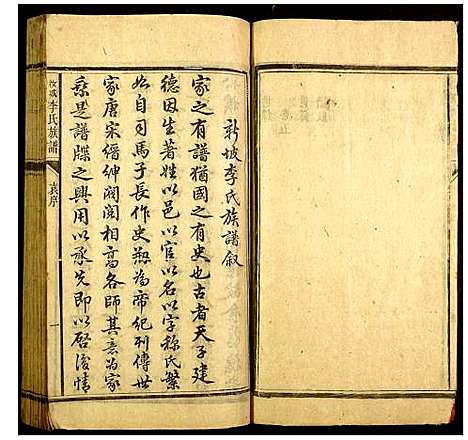 新坡李氏族譜叙
家之有譜猶國之有史也古者天子建
德因生著姓以邑以官以名以字称氏繁
始自司馬子長作史剏為帝紀列傳世
家唐宋縉紳閥閱相高各師其意為家
乘是譜牒之興用以承先即以啓後情
李氏族譜
袁序
一